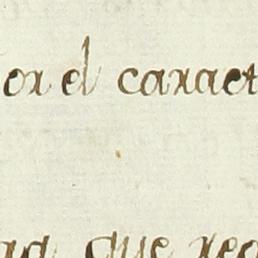 or el caract
ad que reg